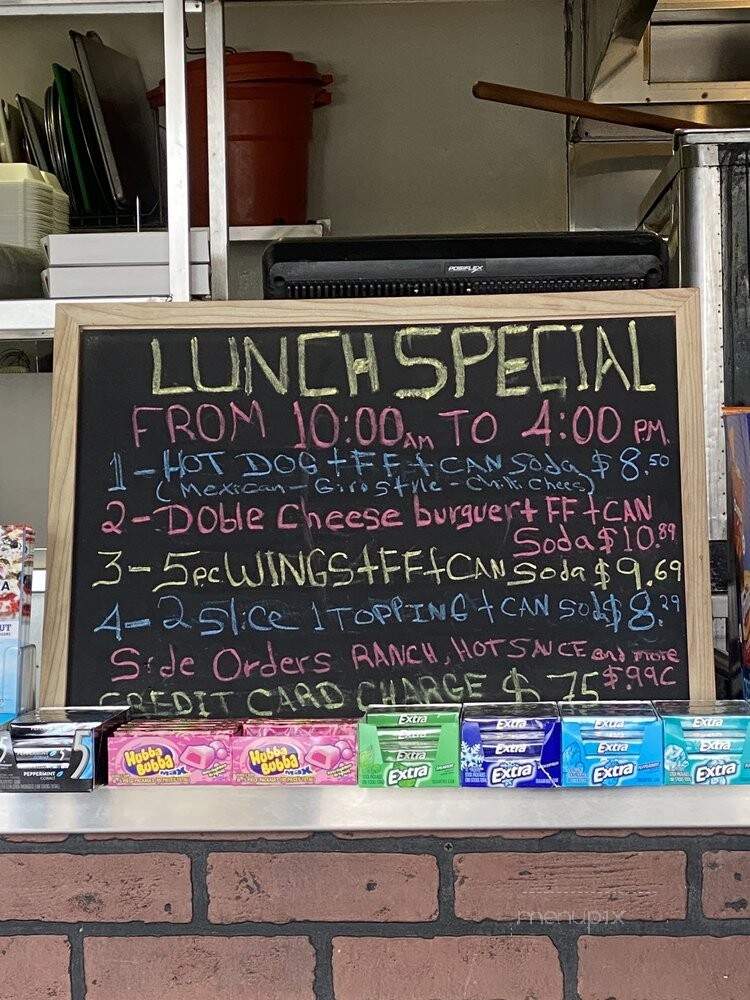 POSIFLEX
LUNCH SPECIAL
FROM 10:00 AM TO 4:00 P.M.
1-HOT DOG +FF+CAN Soda $8.50
(Mexican - Giro style - Chili Chees)
2-Doble Cheese burguer + FF+CAN
Soda $10.89
3-5pc WINGS+FF+CAN Soda $9.69
4-2 Slice 1 TOPPING + CAN Sod $8.29
Side Orders RANCH, HOT SAUCE and more
$.99C
CREDIT CARD CHARGE $.75
Hubba Bubba MAX
Hubba Bubba MAX
Extra Extra Extra Extra
Extra Extra Extra Extra
Extra Extra Extra Extra
5
PEPPERMINT COBALT
menupix